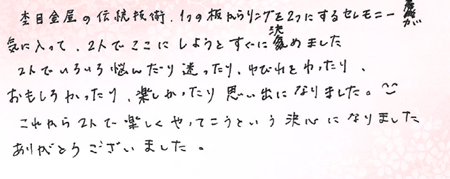 杢目金屋の伝統技術、1つの板からリングを2つにするセレモニーが
気に入って、2人でここにしようとすぐに決めました
2人でいろいろ悩んだり迷ったり、ゆびわをわったり、
おもしろかったり、楽しかったり思い出になりました。
これから2人で楽しくやってこうという決心になりました
ありがとうございました。